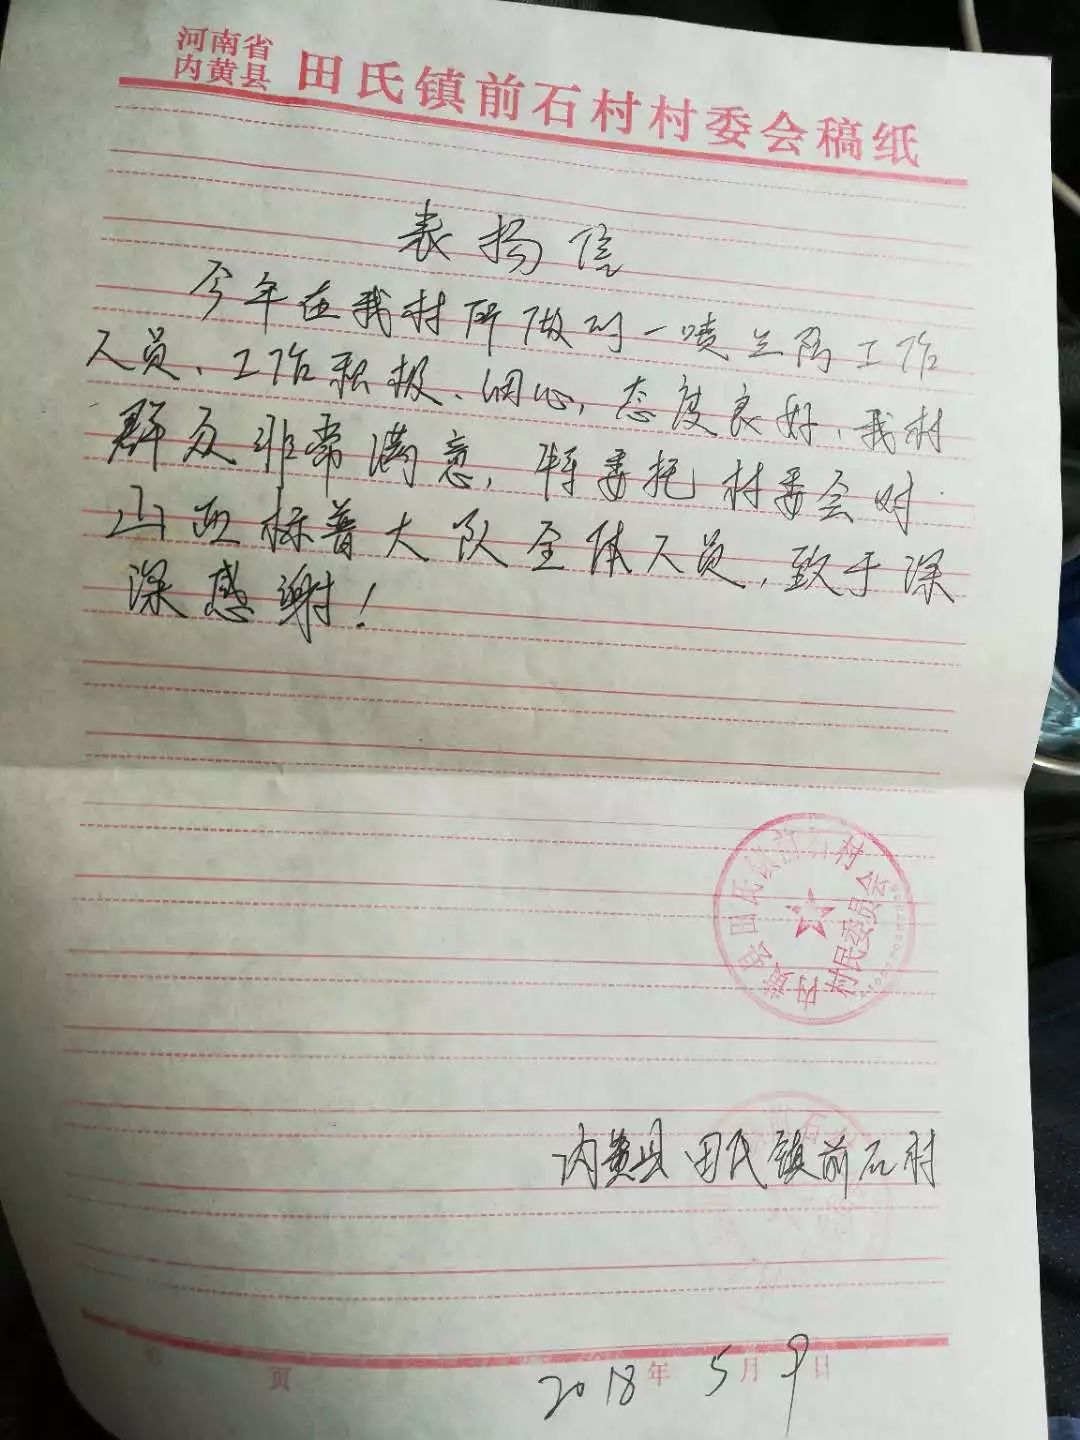 河南省
内黄县
田氏镇前石村村委会稿纸
表扬信
今年在我村所做的一喷三防工作
人员、工作积极、细心,态度良好、我村
群众非常满意,特委托村委会对
山西标普大队全体人员,致于深
深感谢!
内黄县田氏镇前石村
村民委员会
内黄县田氏镇前石村
2018年5月9日
页